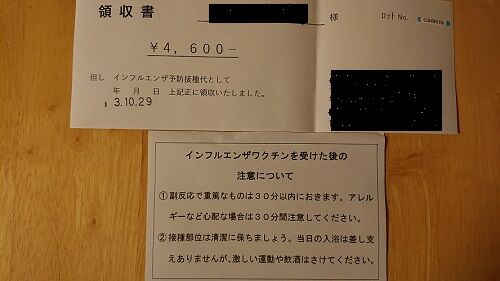 領収書
様
ロットNo.
¥4,600-
但し インフルエンザ予防接種代として
年 月 日 上記正に領収いたしました。
3.10.29
インフルエンザワクチンを受けた後の
注意について
①副反応で重篤なものは30分以内におきます。アレル
ギーなど心配な場合は30分間注意してください。
②接種部位は清潔に保ちましょう。当日の入浴は差し支
えありませんが、激しい運動や飲酒はさけてください。